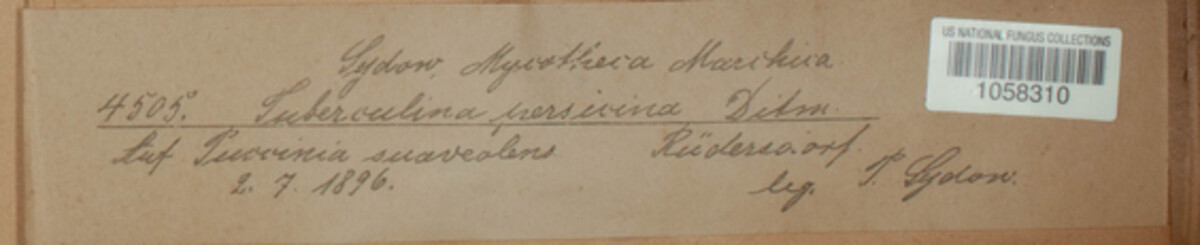 Sydow, Mycotheca Marchica.
4505. Tuberculina persicina Ditm.
Auf Puccinia suaveolens Rüdersdorf.
2. 7. 1896. leg. P. Sydow.
US NATIONAL FUNGUS COLLECTIONS
1058310